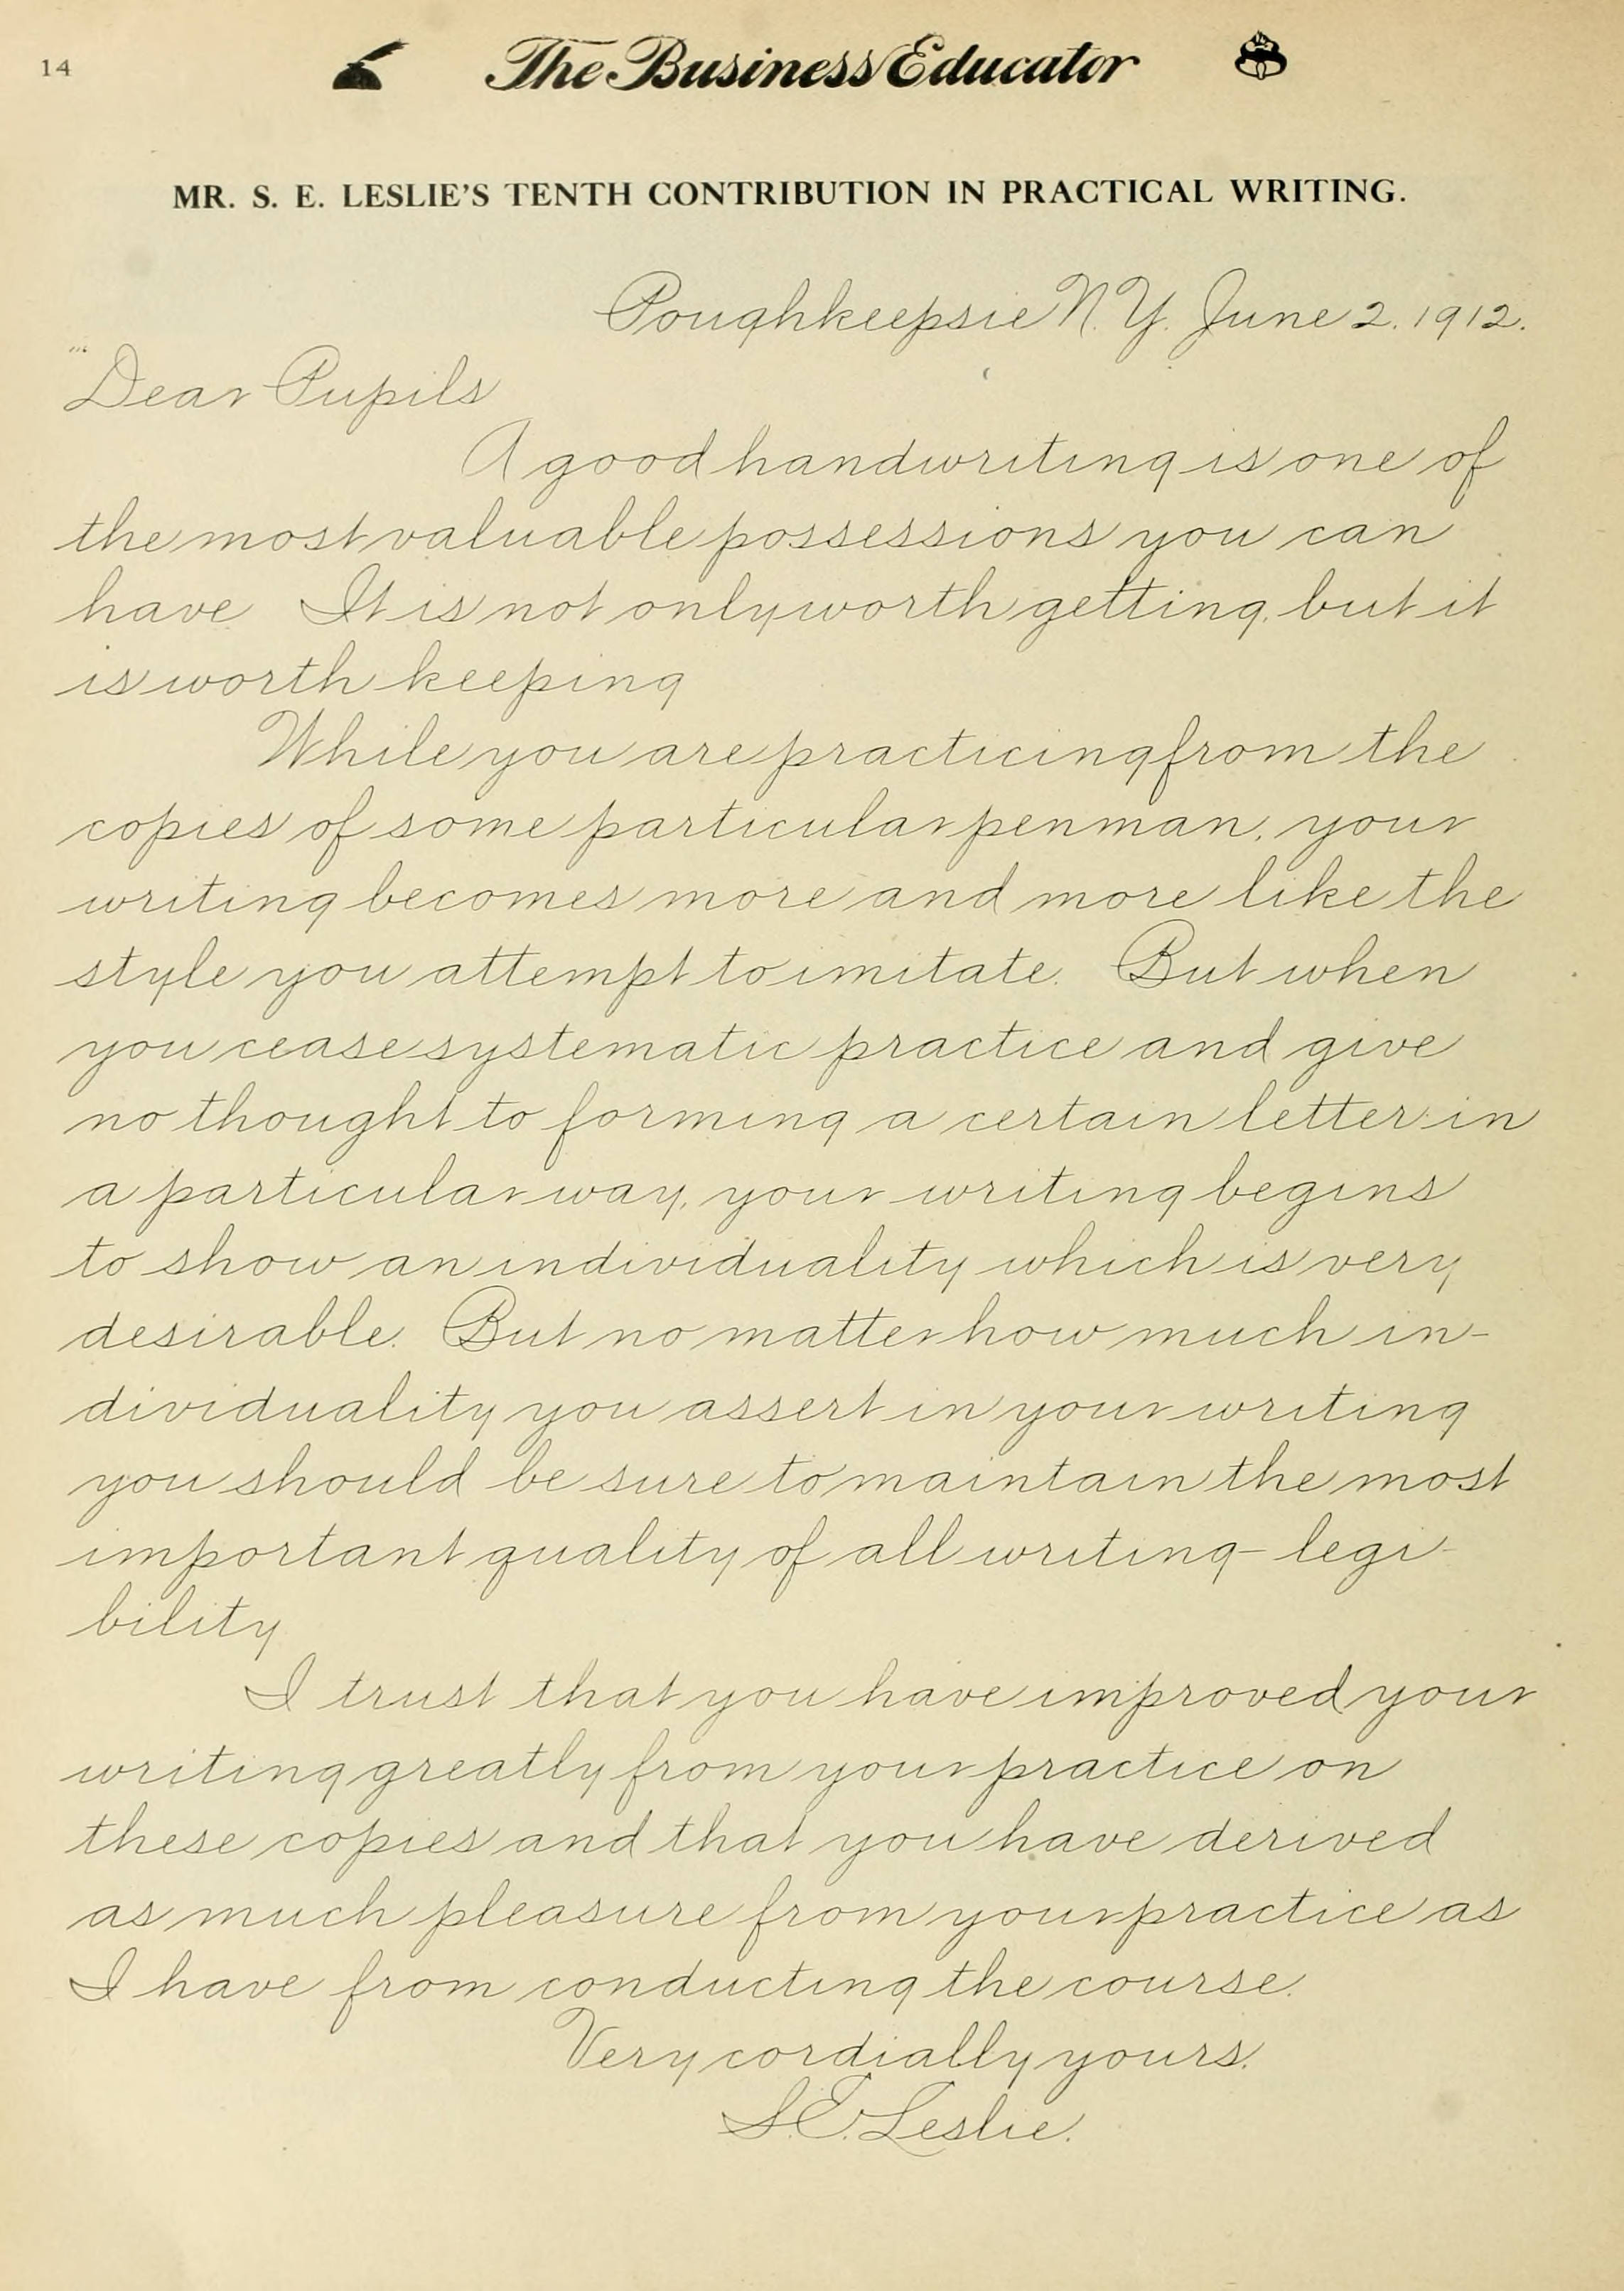 14
The Business Educator
MR. S. E. LESLIE'S TENTH CONTRIBUTION IN PRACTICAL WRITING.
Poughkeepsie N.Y. June 2. 1912.
Dear Pupils
A good handwriting is one of
the most valuable possessions you can
have It is not only worth getting, but it
is worth keeping
While you are practicing from the
copies of some particular penman, your
writing becomes more and more like the
style you attempt to imitate. But when
you cease systematic practice and give
no thought to forming a certain letter in
a particular way, your writing begins
to show an individuality which is very
desirable. But no matter how much in-
dividuality you assert in your writing
you should be sure to maintain the most
important quality of all writing - legi-
bility
I trust that you have improved your
writing greatly from your practice on
these copies and that you have derived
as much pleasure from your practice as
I have from conducting the course.
Very cordially yours.
S.E. Leslie.